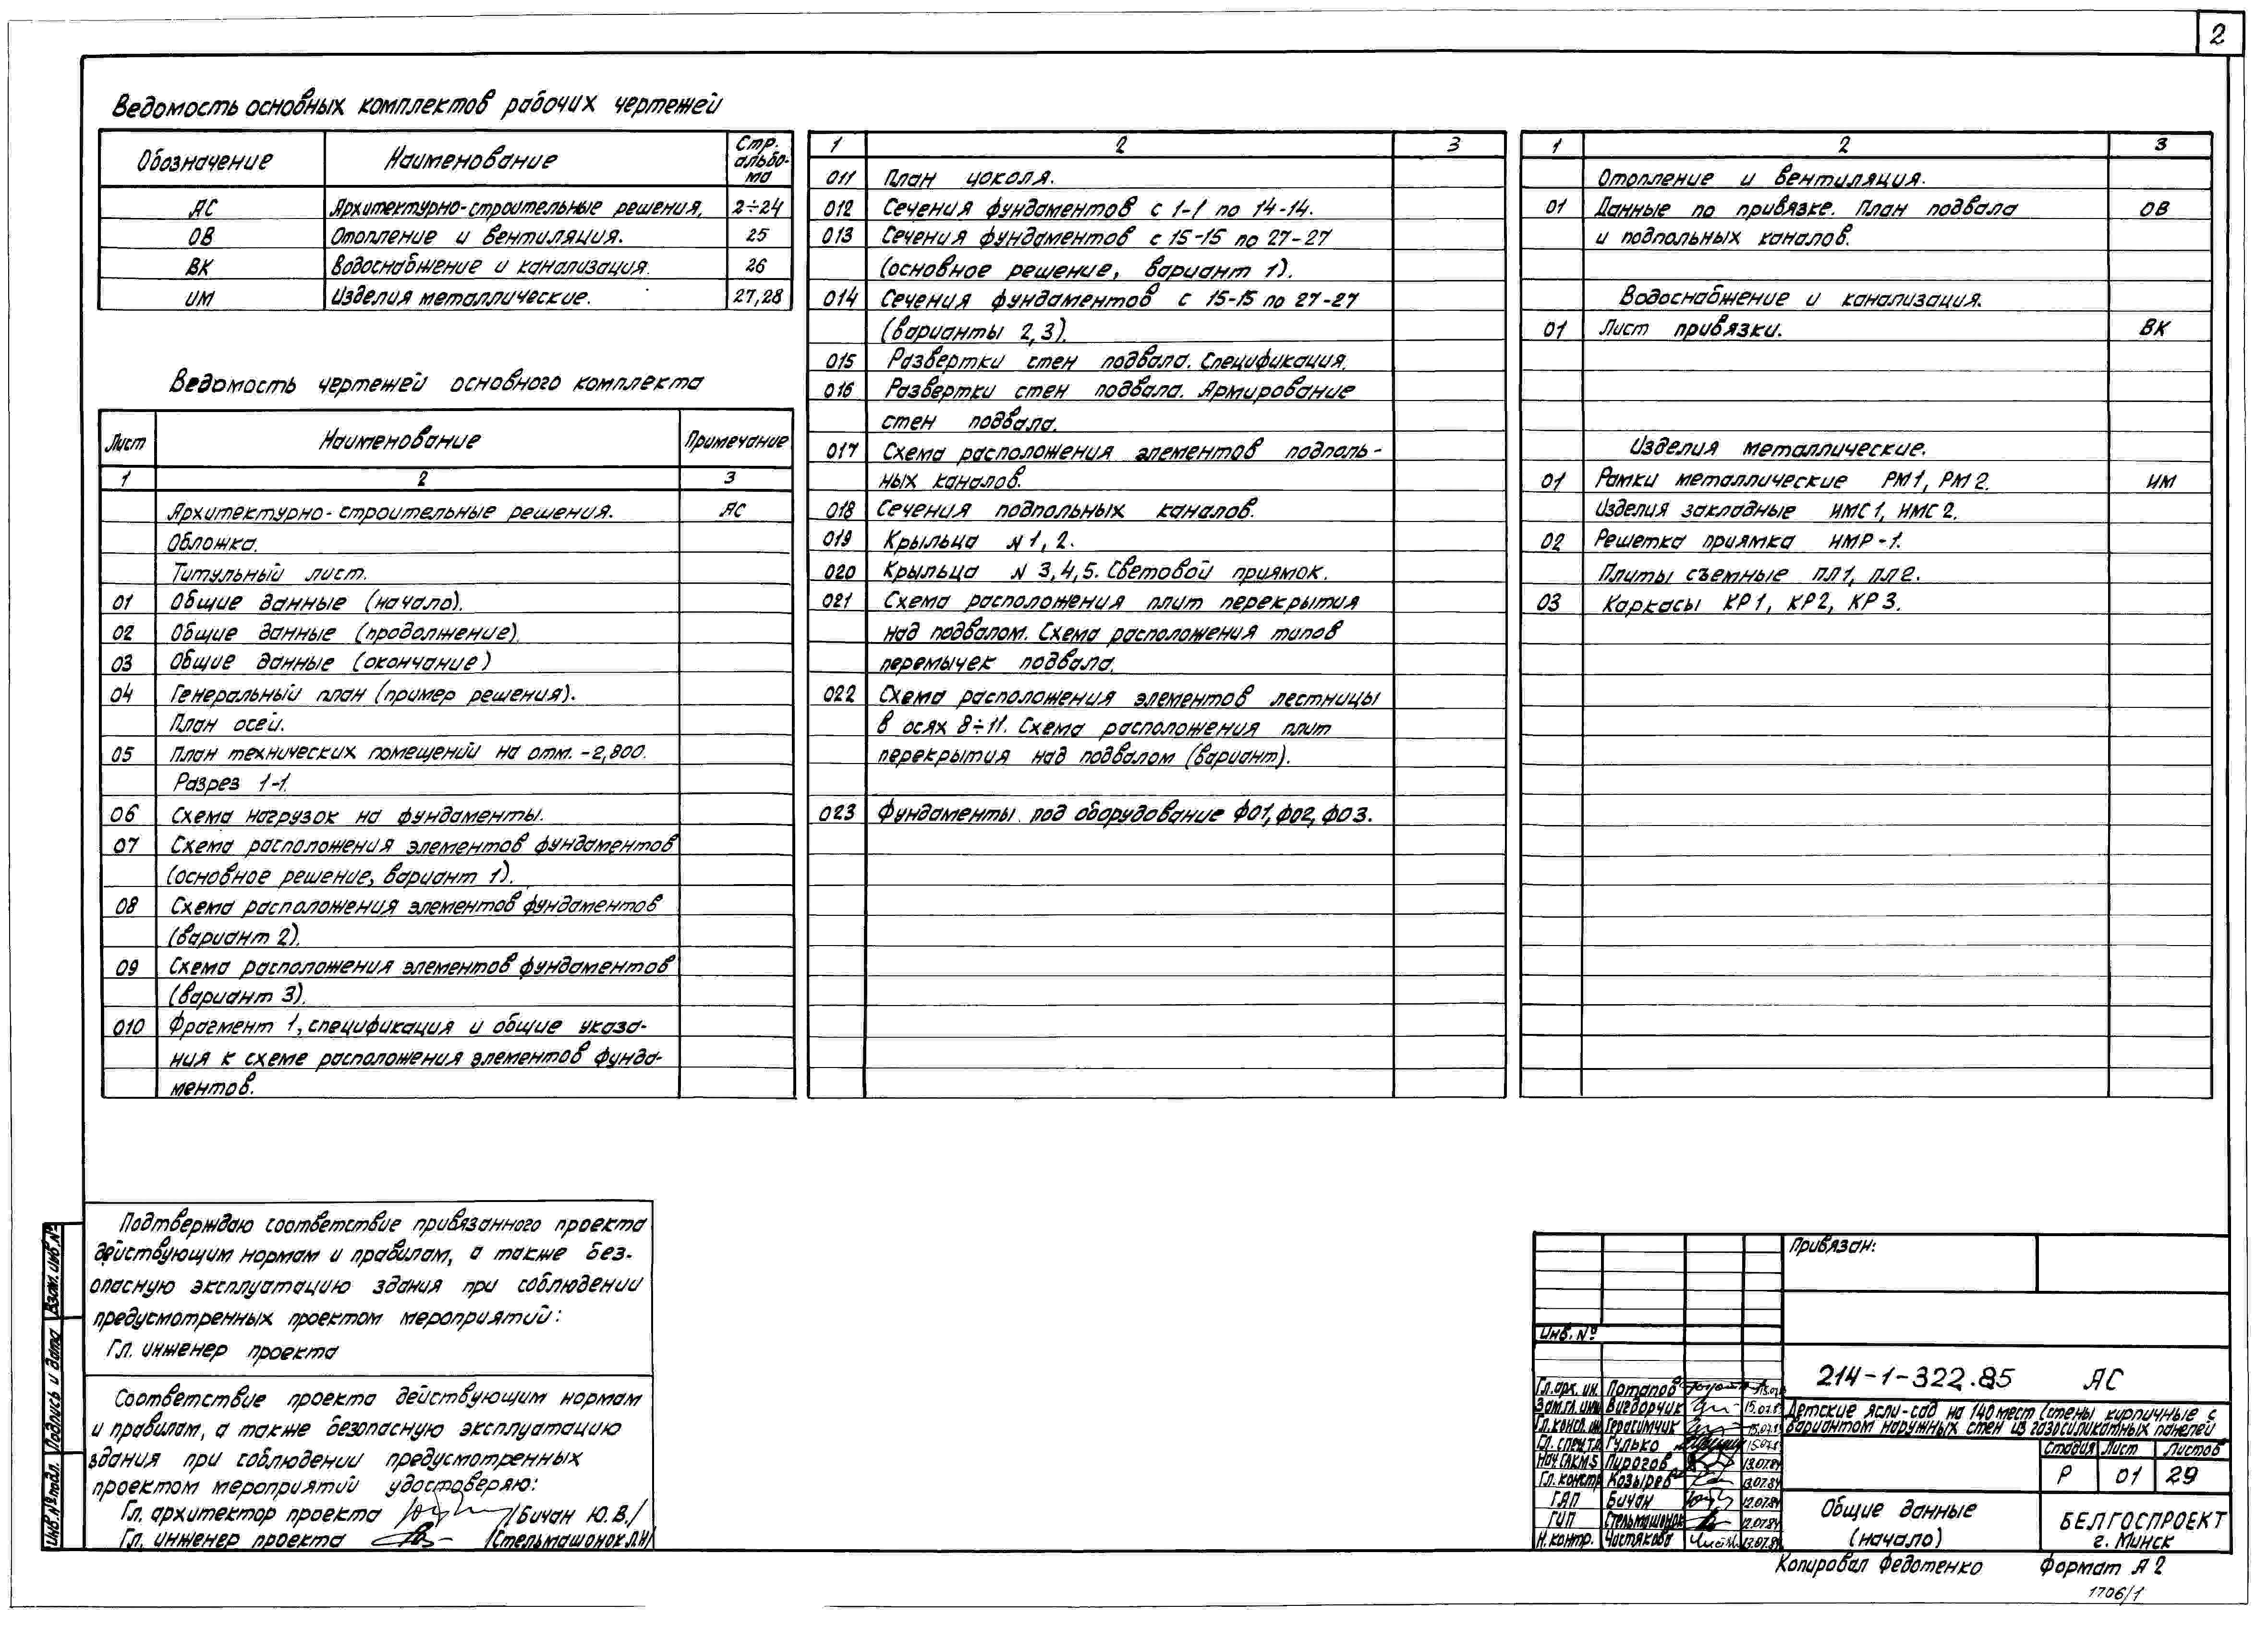 2
Ведомость основных комплектов рабочих чертежей
Обозначение Наименование Стр. альбо-ма
АС Архитектурно-строительные решения. 2÷24
ОВ Отопление и вентиляция. 25
ВК Водоснабжение и канализация. 26
ИМ Изделия металлические. 27,28
Ведомость чертежей основного комплекта
Лист Наименование Примечание
1 2 3
Архитектурно-строительные решения. АС
Обложка.
Титульный лист.
01 Общие данные (начало).
02 Общие данные (продолжение).
03 Общие данные (окончание)
04 Генеральный план (пример решения).
План осей.
05 План технических помещений на отм. -2,800.
Разрез 1-1.
06 Схема нагрузок на фундаменты.
07 Схема расположения элементов фундаментов
(основное решение, вариант 1).
08 Схема расположения элементов фундаментов
(вариант 2).
09 Схема расположения элементов фундаментов
(вариант 3).
010 Фрагмент 1, спецификация и общие указа-
ния к схеме расположения элементов фунда-
ментов.
1 2 3
011 План цоколя.
012 Сечения фундаментов с 1-1 по 14-14.
013 Сечения фундаментов с 15-15 по 27-27
(основное решение, вариант 1).
014 Сечения фундаментов с 15-15 по 27-27
(варианты 2,3).
015 Развертки стен подвала. Спецификация.
016 Развертки стен подвала. Армирование
стен подвала.
017 Схема расположения элементов подполь-
ных каналов.
018 Сечения подпольных каналов.
019 Крыльца N 1, 2.
020 Крыльца N 3,4,5. Световой приямок.
021 Схема расположения плит перекрытия
над подвалом. Схема расположения типов
перемычек подвала.
022 Схема расположения элементов лестницы
в осях 8÷11. Схема расположения плит
перекрытия над подвалом (вариант).
023 Фундаменты под оборудование ФО1, ФО2, ФО3.
1 2 3
Отопление и вентиляция.
01 Данные по привязке. План подвала ОВ
и подпольных каналов.
Водоснабжение и канализация.
01 Лист привязки. ВК
Изделия металлические.
01 Рамки металлические РМ1, РМ2. ИМ
Изделия закладные ИМС1, ИМС2.
02 Решетка приямка ИМР-1.
Плиты съемные ПЛ1, ПЛ2.
03 Каркасы КР1, КР2, КР3.
Подтверждаю соответствие привязанного проекта
действующим нормам и правилам, а также без-
опасную эксплуатацию здания при соблюдении
предусмотренных проектом мероприятий:
Гл. инженер проекта
Соответствие проекта действующим нормам
и правилам, а также безопасную эксплуатацию
здания при соблюдении предусмотренных
проектом мероприятий удостоверяю:
Гл. архитектор проекта /Бичан Ю.В./
Гл. инженер проекта /Стельмашонок Л.Н/
Взам. инв. №
Подпись и дата
Инв. № подл.
Привязан:
Инв. №
214-1-322.85 АС
Гл. арх. ин. Потапов
Зам. гл. инж Вигдорчик 15.07.8
Гл. констр. ин Герасимчик 15.07.8
Гл. спец. т.о. Гулько 15.07.8
Нач. САКМ-5 Пирогов 13.07.84
Гл. констр Козырев 13.07.84
ГАП Бичан 12.07.84
ГИП Стельмашонок 12.07.84
Н. контр. Чистякова 13.07.84
Детские ясли-сад на 140 мест (стены кирпичные с
вариантом наружных стен из газосиликатных панелей
Стадия Лист Листов
Р 01 29
Общие данные
(начало)
БЕЛГОСПРОЕКТ
г. Минск
Копировал Федотенко Формат А2
1706/1